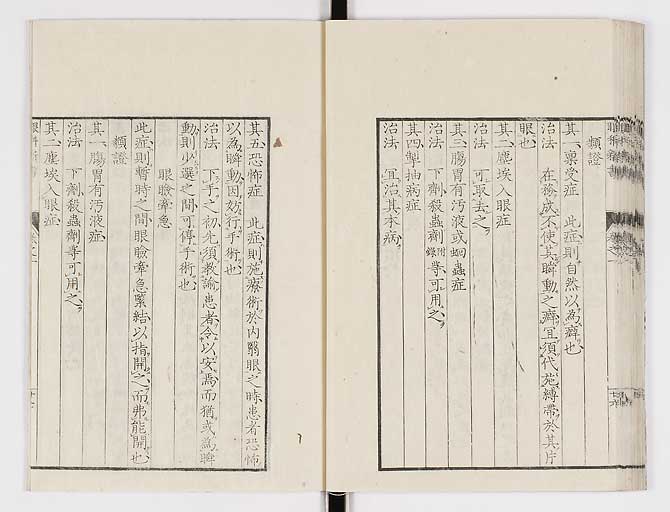 類證
其一稟受症 此症則自然以為癖也
治法 在務成不使其瞬動之癖宜須代施縛帶於其片
眼也
其二塵埃入眼症
治法 可取去之
其三腸胃有汚液或蛔蟲症
治法 下劑殺蟲劑附錄等可用之
其四掣抽病症
治法 宜治其本病
其五恐怖症 此症則施療術於內翳眼之時患者恐怖
以為瞬動因妨行手術也
治法 下手之初先須教諭患者令以安焉而猶或為瞬
動則少選之間可停手術也
眼瞼牽急
此症則暫時之間眼瞼牽急緊結以指開之而弗能開也
類證
其一腸胃有汚液症
治法 下劑殺蟲劑等可用之
其二塵埃入眼症